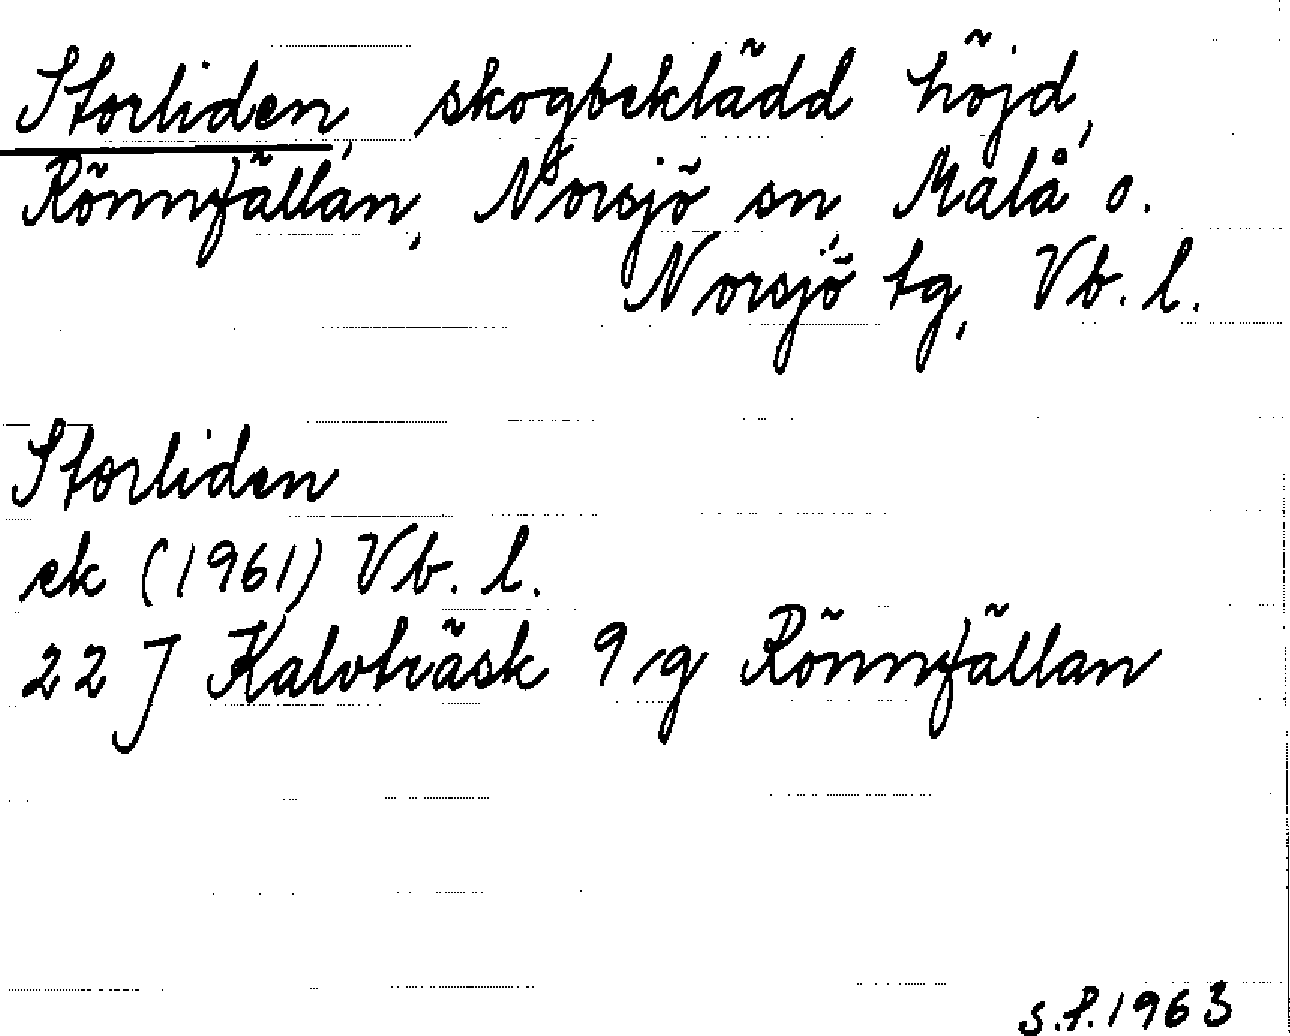 Storliden, skogbeklädd höjd,
Rönnfällan, Norsjö sn, Malå o.
Norsjö tg, Vb. l.
Storliden
ek (1961) Vb. l.
22 J Kalvträsk 9 g Rönnfällan
s.P. 1963